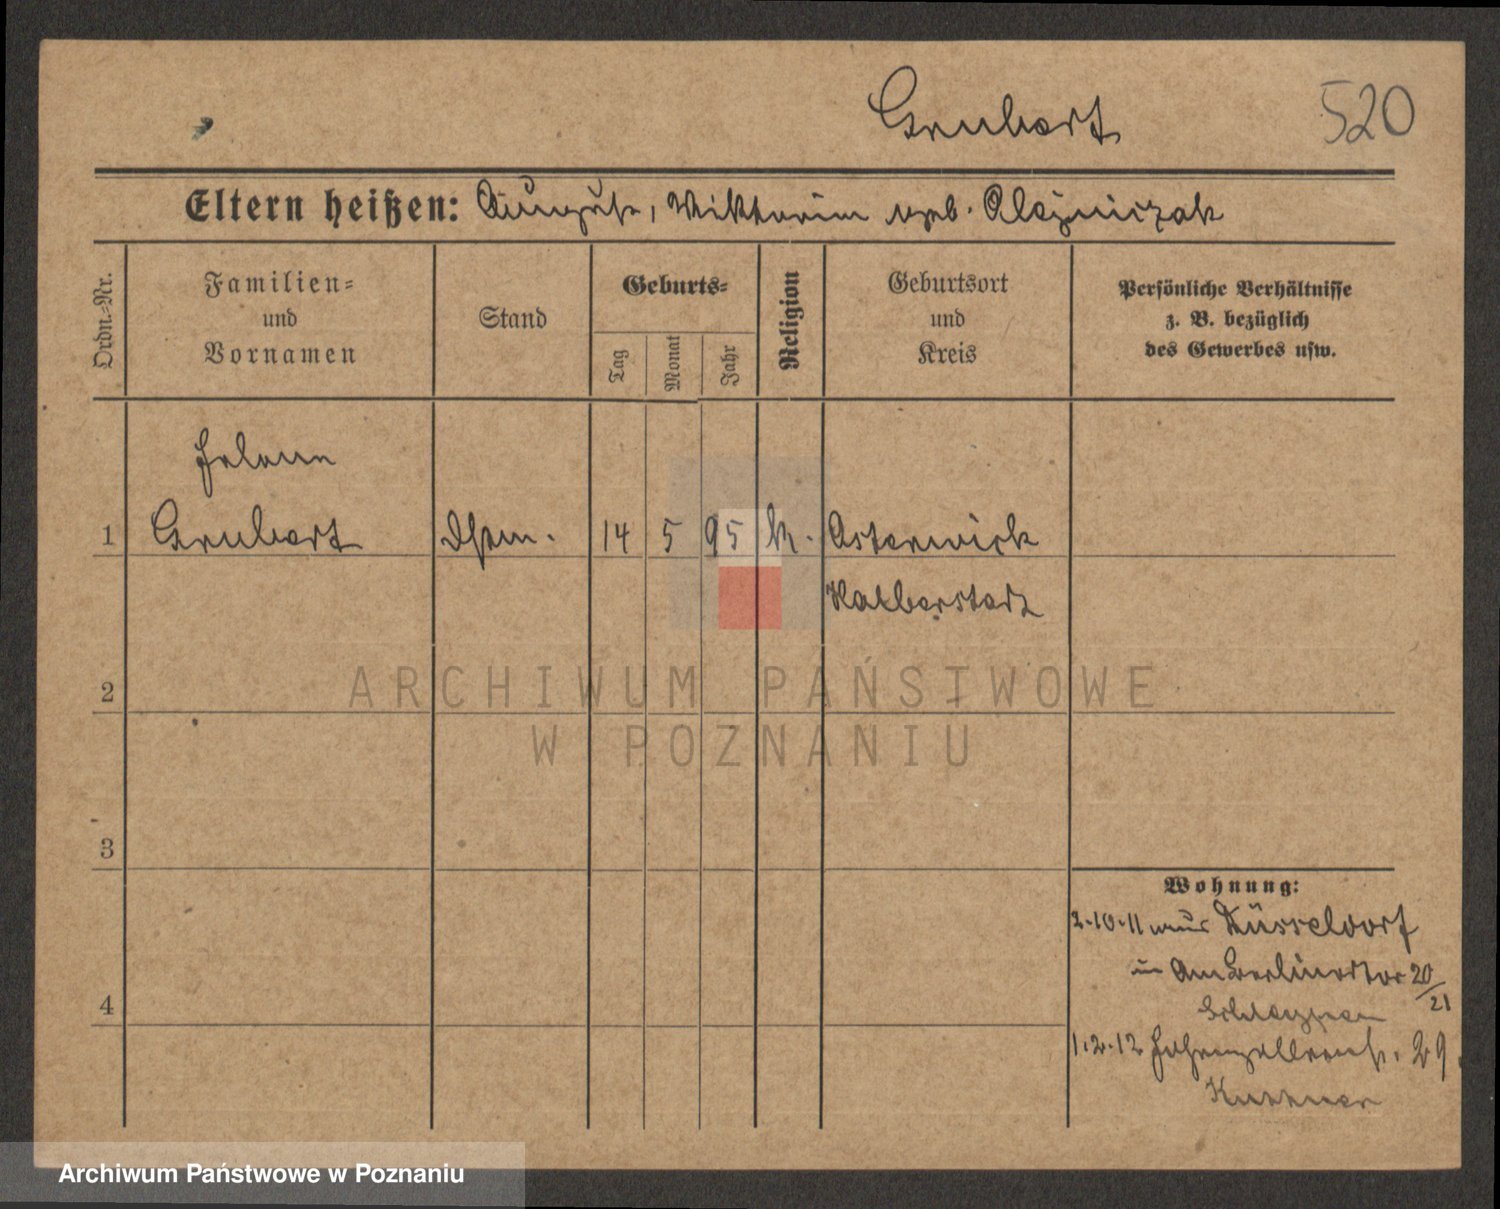 Grubert
520
Eltern heißen: August, Viktoria geb. Olejniczak
Ordn.-Nr.
Familien-
und
Vornamen
Stand
Geburts-
Tag
Monat
Jahr
Religion
Geburtsort
und
Kreis
Persönliche Verhältnisse
z. B. bezüglich
des Gewerbes usw.
Helene
1 Grubert Dstm. 14 5 95 k. Osterwick
Halberstadt
2
3
4
Wohnung:
2.10.11 aus Düsseldorf
in Am Berlinertor 20/21
1.2.12 29
Kuttner
ARCHIWUM PAŃSTWOWE
W POZNANIU
Archiwum Państwowe w Poznaniu